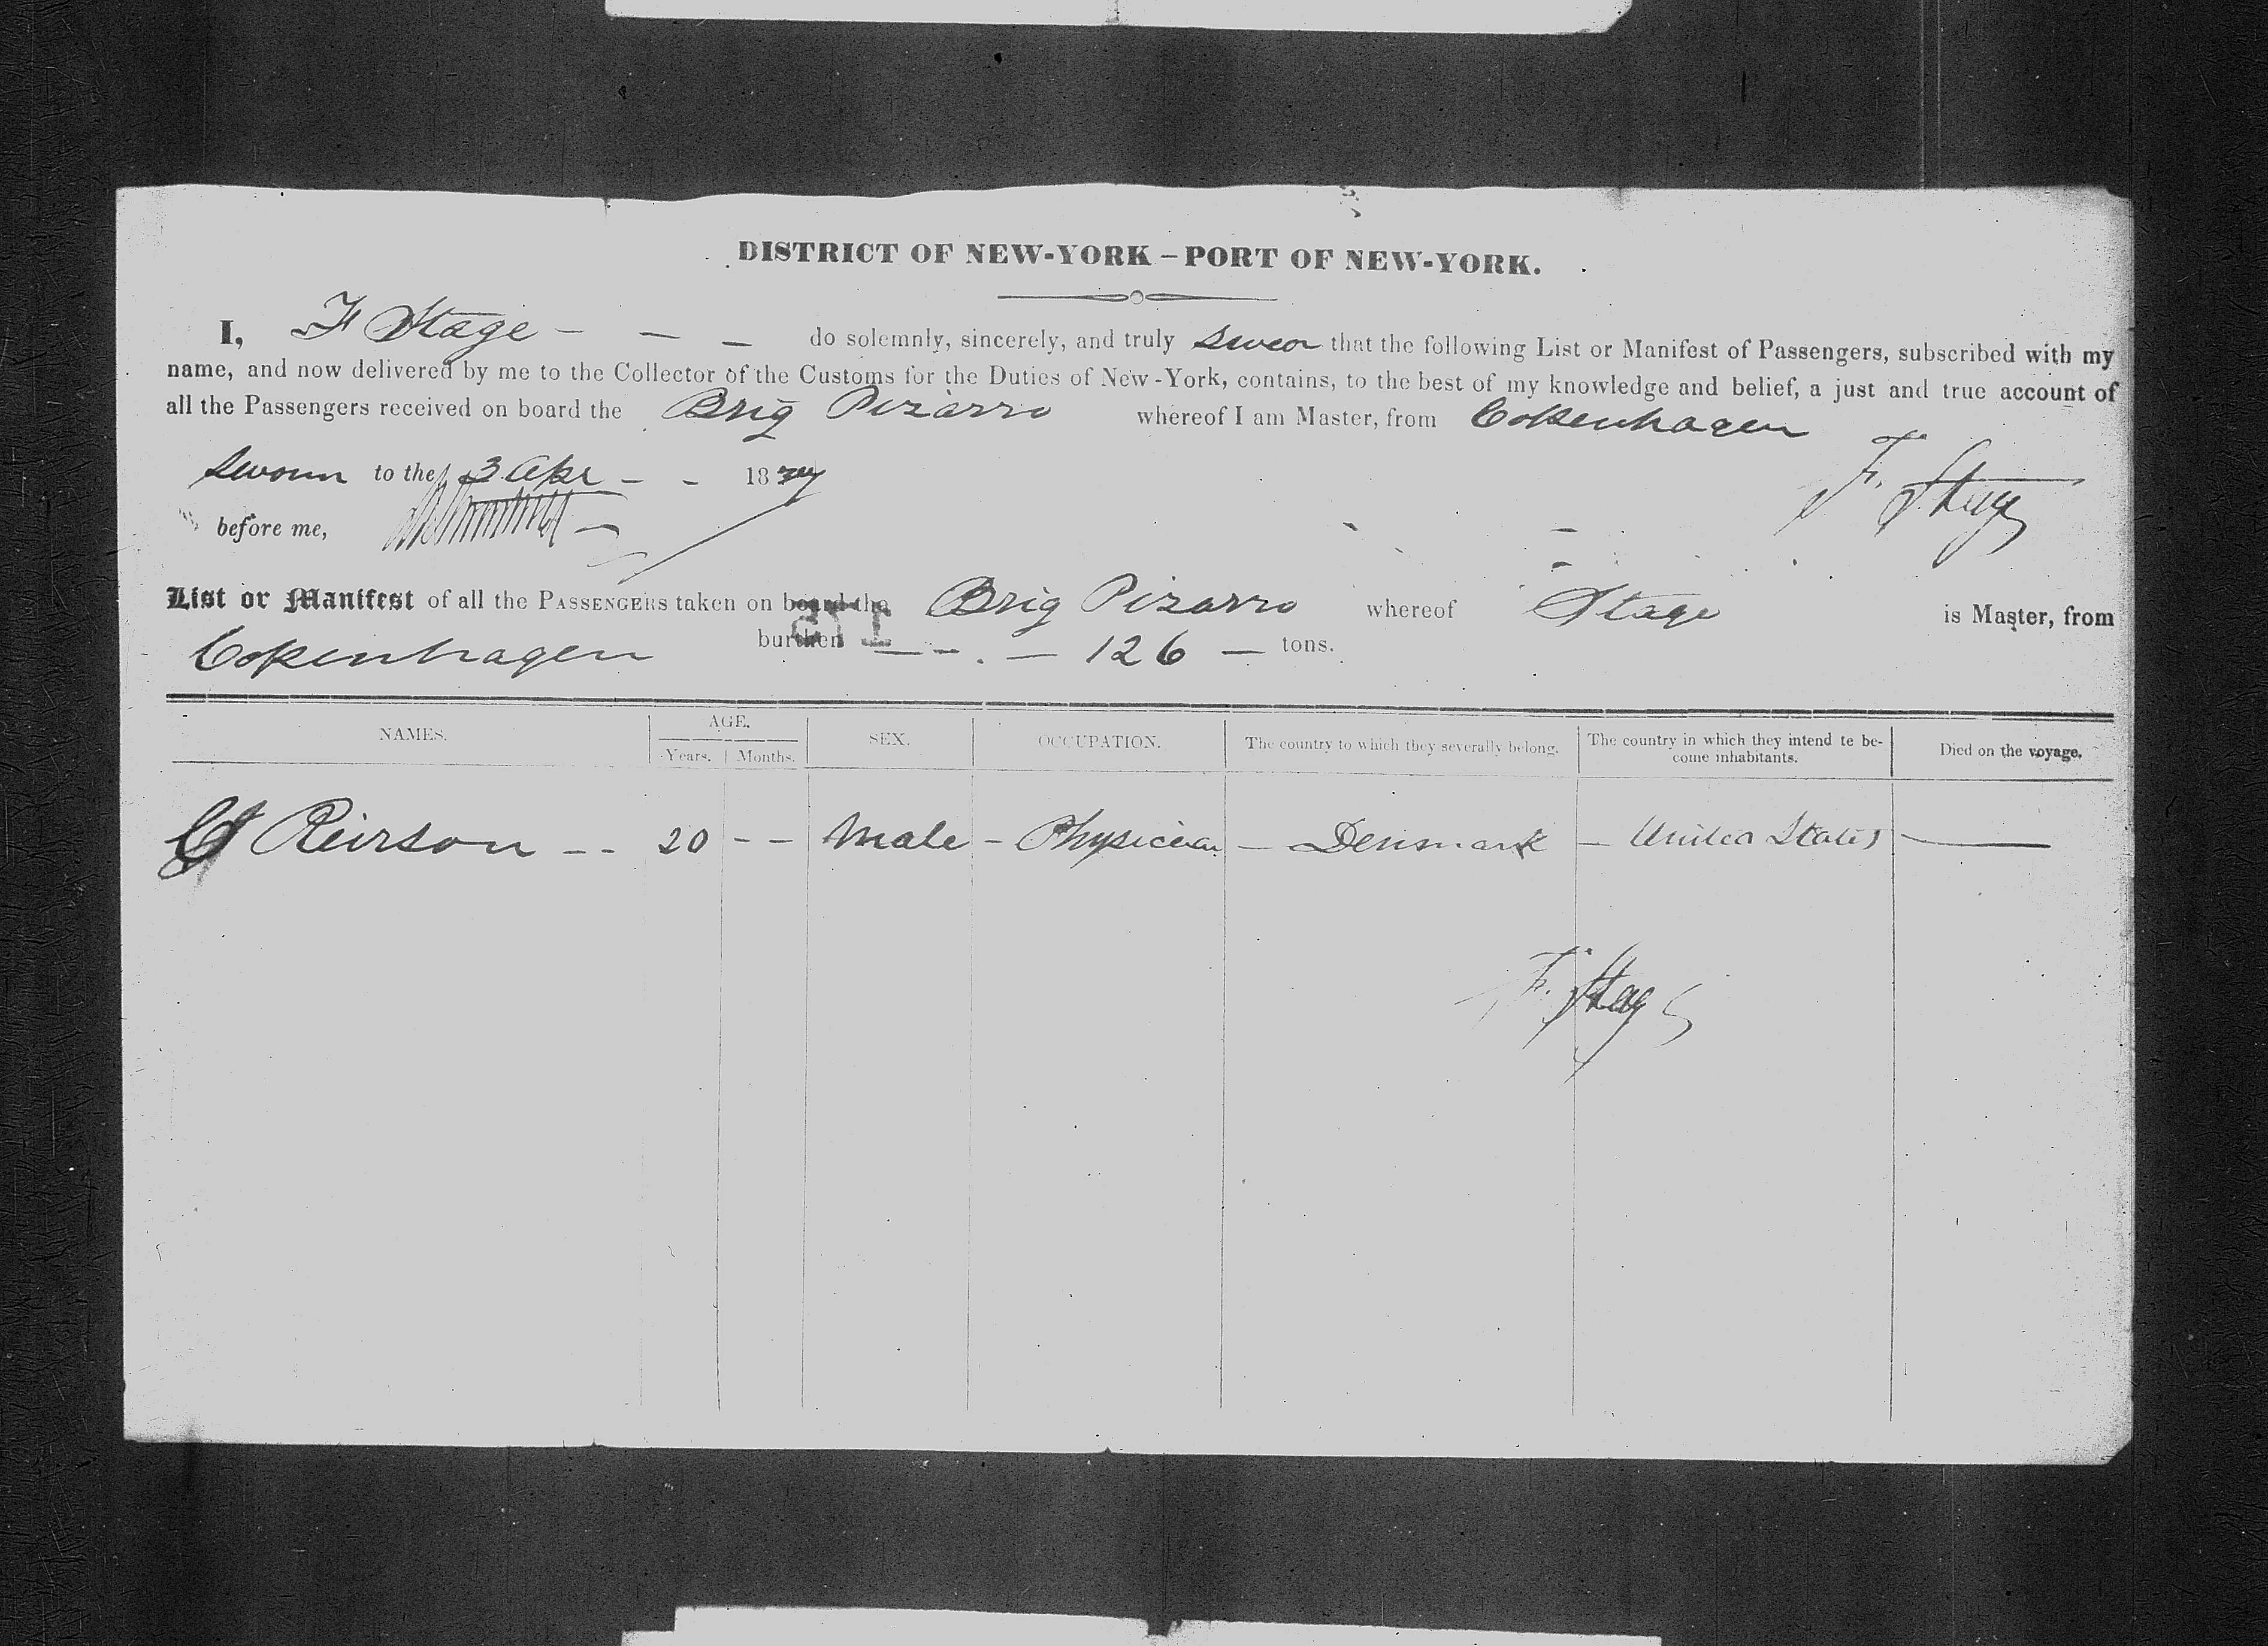 DISTRICT OF NEW-YORK – PORT OF NEW-YORK.
I, F Stage – – – do solemnly, sincerely, and truly swear that the following List or Manifest of Passengers, subscribed with my
name, and now delivered by me to the Collector of the Customs for the Duties of New-York, contains, to the best of my knowledge and belief, a just and true account of
all the Passengers received on board the Brig Pizarro whereof I am Master, from Copenhagen
Sworn to the 3 Apr – – 18
F. Stage
before me,
List or Manifest of all the PASSENGERS taken on board the Brig Pizarro whereof Stage is Master, from
Copenhagen burthen – – – 126 – tons.
NAMES. AGE. Years. Months. SEX. OCCUPATION. The country to which they severally belong. The country in which they intend te become inhabitants. Died on the voyage.
Reirson – – 20 – – Male – Physician – Denmark – United States –
F. Stage